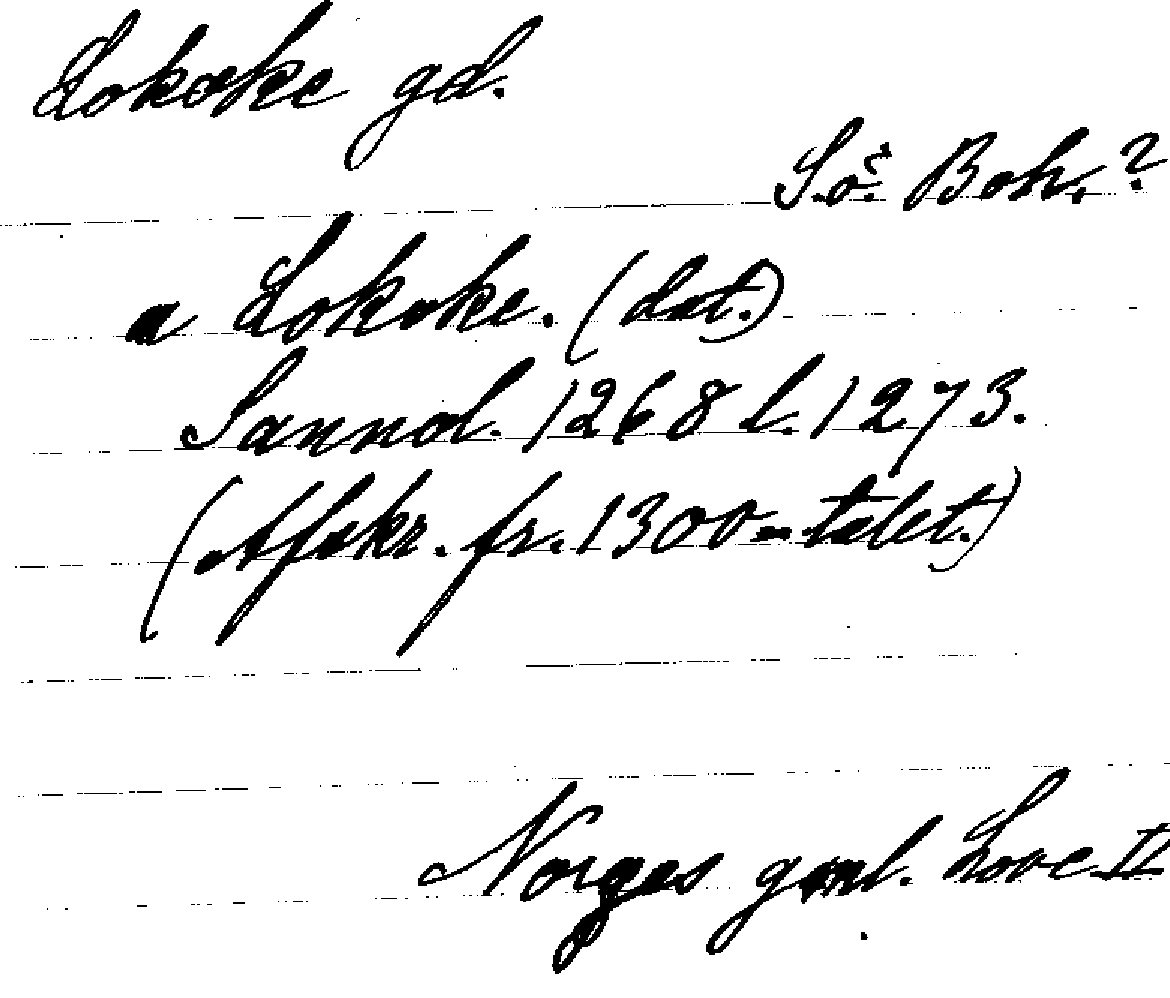 Lokoke gd.
S.o.s. Boh.?
a Lokoke. (dat.)
Sannol. 1268 l. 1273.
(Afskr. fr. 1300-talet.)
Norges gml. Love II